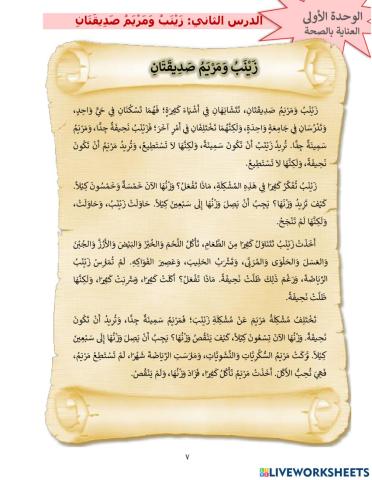 الوحدة الأولى
العناية بالصحة
الدرس الثاني: زَيْنَبُ وَمَرْيَمُ صَدِيقَتَانِ
زَيْنَبُ وَمَرْيَمُ صَدِيقَتَانِ
زَيْنَبُ وَمَرْيَمُ صَدِيقَتَانِ، تَتَشَابَهَانِ فِي أَشْيَاءَ كَثِيرَةٍ؛ فَهُمَا تَسْكُنَانِ فِي حَيٍّ وَاحِدٍ،
وَتَدْرُسَانِ فِي جَامِعَةٍ وَاحِدَةٍ، وَلَكِنَّهُمَا تَخْتَلِفَانِ فِي أَمْرٍ آخَرَ؛ فَزَيْنَبُ نَحِيفَةٌ جِدًّا، وَمَرْيَمُ
سَمِينَةٌ جِدًّا. تُرِيدُ زَيْنَبُ أَنْ تَكُونَ سَمِينَةً، وَلَكِنَّهَا لَا تَسْتَطِيعُ، وَتُرِيدُ مَرْيَمُ أَنْ تَكُونَ
نَحِيفَةً، وَلَكِنَّهَا لَا تَسْتَطِيعُ.
زَيْنَبُ تُفَكِّرُ كَثِيرًا فِي هَذِهِ الْمُشْكِلَةِ، مَاذَا تَفْعَلُ؟ وَزْنُهَا الآنَ خَمْسَةٌ وَخَمْسُونَ كِيلًا.
كَيْفَ تَزِيدُ وَزْنَهَا؟ يَجِبُ أَنْ يَصِلَ وَزْنُهَا إِلَى سَبْعِينَ كِيلًا. حَاوَلَتْ زَيْنَبُ، وَحَاوَلَتْ،
وَلَكِنَّهَا لَمْ تَنْجَحْ.
أَخَذَتْ زَيْنَبُ تَتَنَاوَلُ كَثِيرًا مِنَ الطَّعَامِ، تَأْكُلُ اللَّحْمَ وَالْخُبْزَ وَالْبَيْضَ وَالأَرُزَّ وَالْجُبْنَ
وَالْعَسَلَ وَالْحَلْوَى وَالْمُرَبَّى، وَتَشْرَبُ الْحَلِيبَ، وَعَصِيرَ الْفَوَاكِهِ. لَمْ تُمَارِسْ زَيْنَبُ
الرِّيَاضَةَ، وَرَغْمَ ذَلِكَ ظَلَّتْ نَحِيفَةً. مَاذَا تَفْعَلُ؟ أَكَلَتْ كَثِيرًا، وَشَرِبَتْ كَثِيرًا، وَلَكِنَّهَا
ظَلَّتْ نَحِيفَةً.
تَخْتَلِفُ مُشْكِلَةُ مَرْيَمَ عَنْ مُشْكِلَةِ زَيْنَبَ؛ فَمَرْيَمُ سَمِينَةٌ جِدًّا، وَتُرِيدُ أَنْ تَكُونَ
نَحِيفَةً. وَزْنُهَا الآنَ تِسْعُونَ كِيلًا، كَيْفَ يَنْقُصُ وَزْنُهَا؟ يَجِبُ أَنْ يَصِلَ وَزْنُهَا إِلَى سَبْعِينَ
كِيلًا. تَرَكَتْ مَرْيَمُ السُّكَّرِيَّاتِ وَالنَّشَوِيَّاتِ، وَمَارَسَتِ الرِّيَاضَةَ شَهْرًا، لَمْ تَسْتَطِعْ مَرْيَمُ،
فَهِيَ تُحِبُّ الأَكْلَ. أَخَذَتْ مَرْيَمُ تَأْكُلُ كَثِيرًا، فَزَادَ وَزْنُهَا، وَلَمْ يَنْقُصْ.
٧
LIVEWORKSHEETS